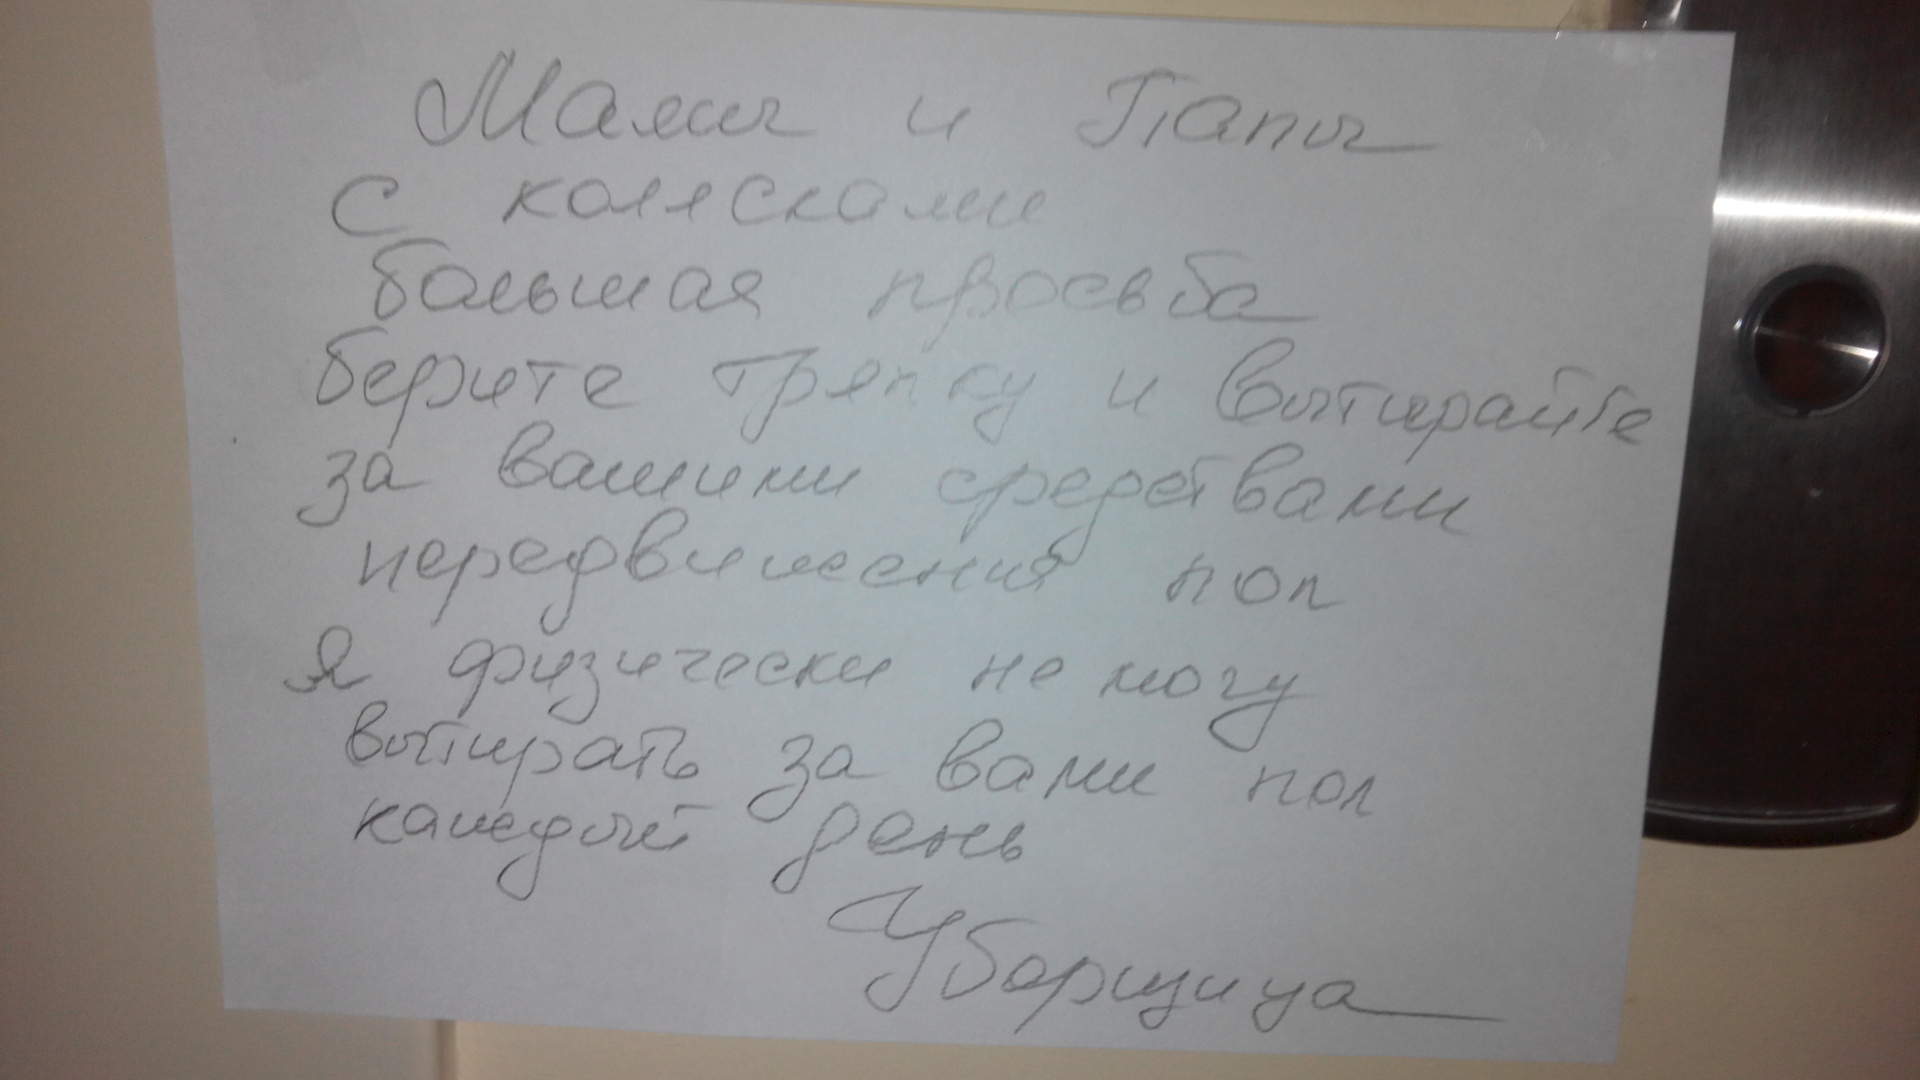 Мамы и Папы
с колясками
большая просьба
берите тряпку и вытирайте
за вашими средствами
передвижения пол
Я физически не могу
вытирать за вами пол
каждый день
Уборщица